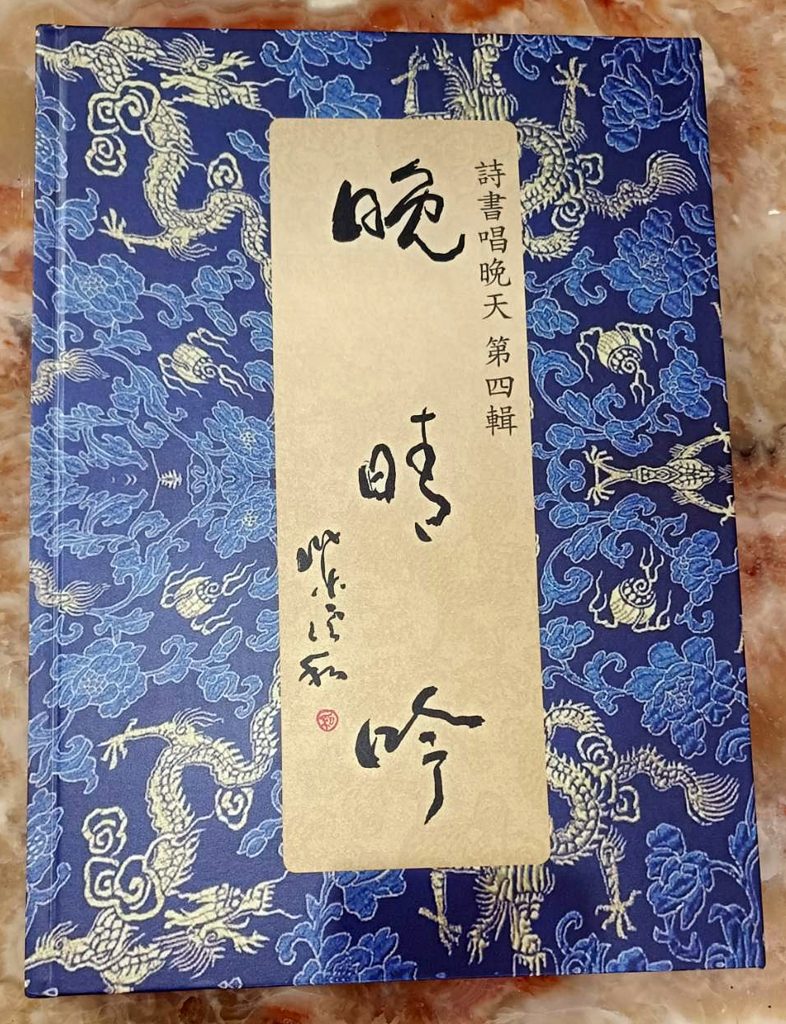 詩書唱晚天 第四輯
晚晴吟